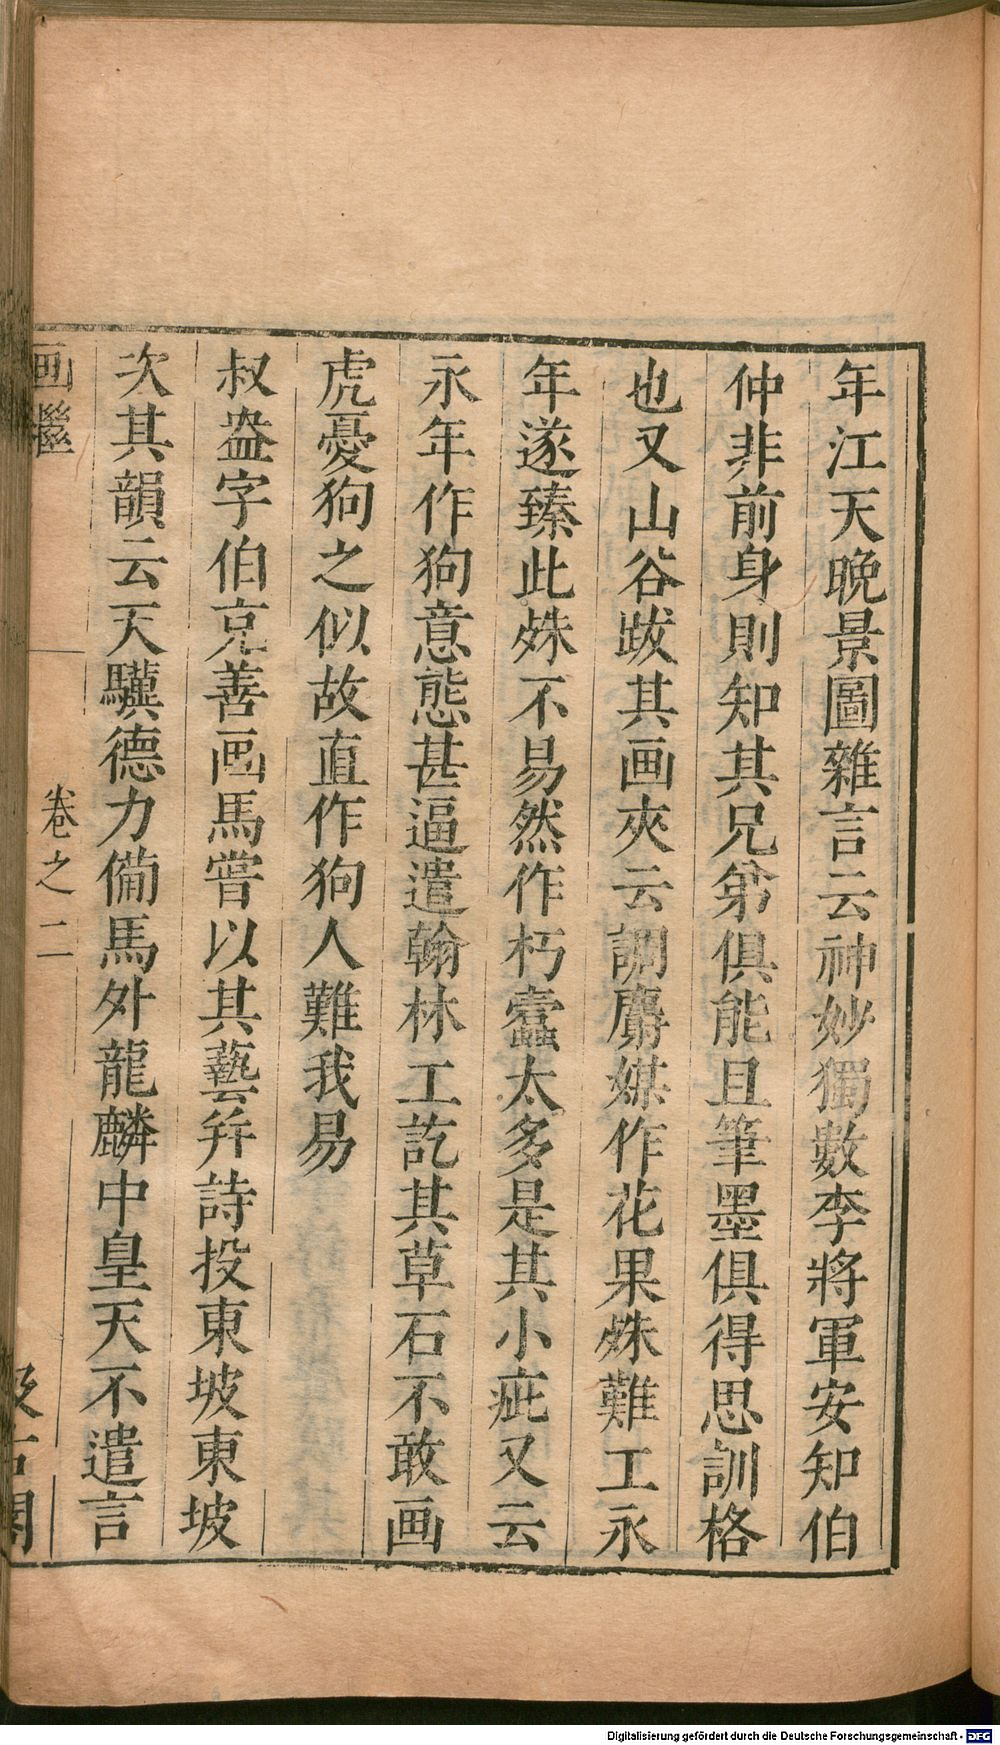 年江天晚景圖雜言云神妙獨數李將軍安知伯
仲非前身則知其兄弟俱能且筆墨俱得思訓格
也又山谷跋其画夾云調麝媒作花果殊難工永
年遂臻此殊不易然作朽蠹太多是其小疵又云
永年作狗意態甚逼遣翰林工訖其草石不敢画
虎憂狗之似故直作狗人難我易
叔盎字伯充善画馬嘗以其藝并詩投東坡東坡
次其韻云天驥德力備馬外龍麟中皇天不遣言
画繼
卷之二
汲古閣
Digitalisierung gefördert durch die Deutsche Forschungsgemeinschaft - DFG